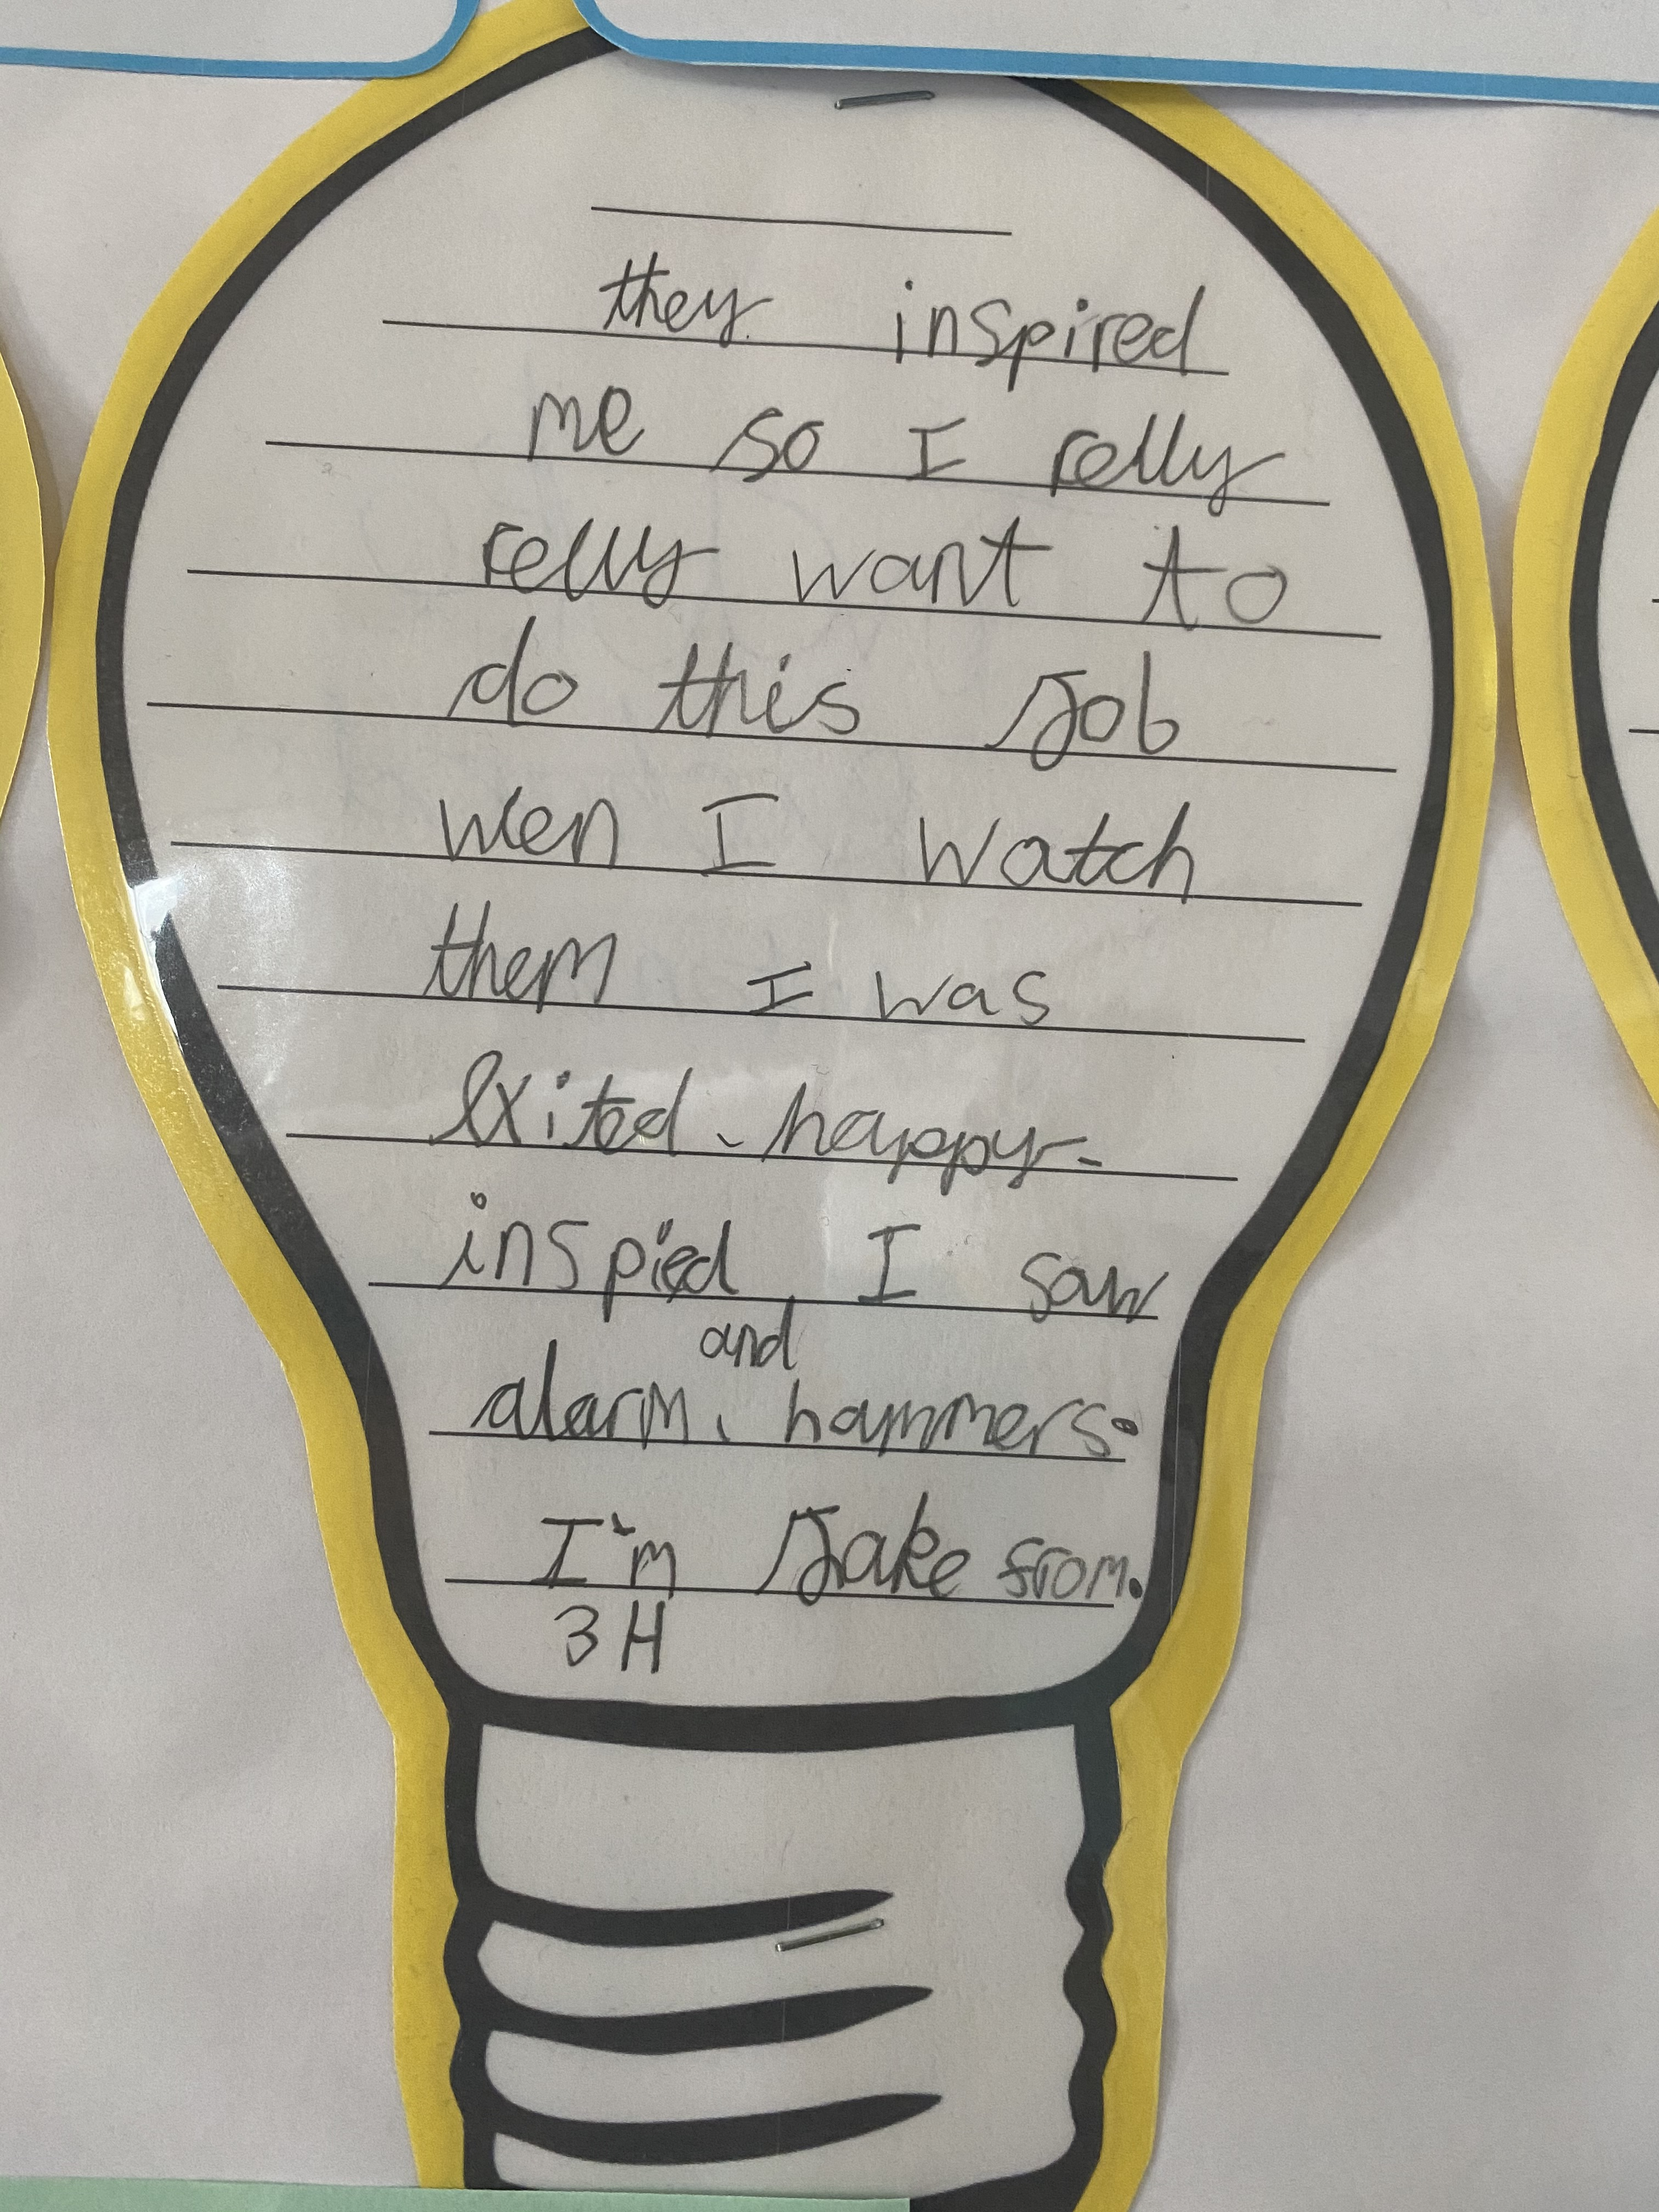 they inspired
me so I relly
relly want to
do this Job
wen I watch
them I was
exited, happy,
inspied, I saw
and
alarm, hammers.
I'm Jake from.
3H